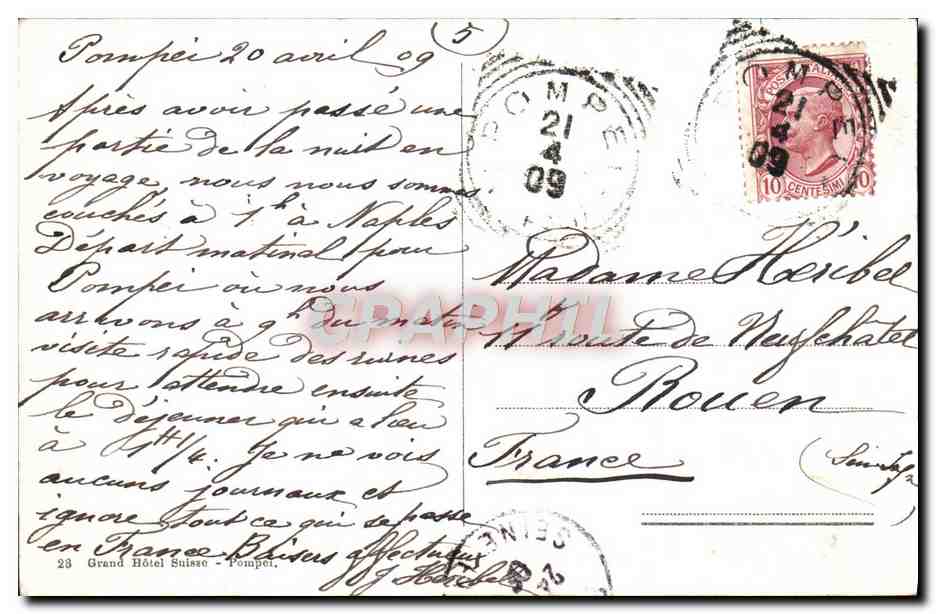 5
Pompéi 20 avril 09
Après avoir passé une
partie de la nuit en
voyage, nous nous sommes
couchés à 1h à Naples
Départ matinal pour
Pompéi où nous
arrivons à 9h du matin
visite rapide des ruines
pour attendre ensuite
le déjeuner qui a lieu
à 1H 1/4. Je ne vois
aucuns journaux et
ignore tout ce qui se passe
en France Baisers affectueux
J Heribel
23 Grand Hôtel Suisse - Pompei.
POMPEI
21
4
09
POMPEI
21
4
09
POSTE ITALIANE
10 CENTESIMI 10
Madame Héribel
route de Neufchâtel
Rouen
France
SEINE
CPAPHIL